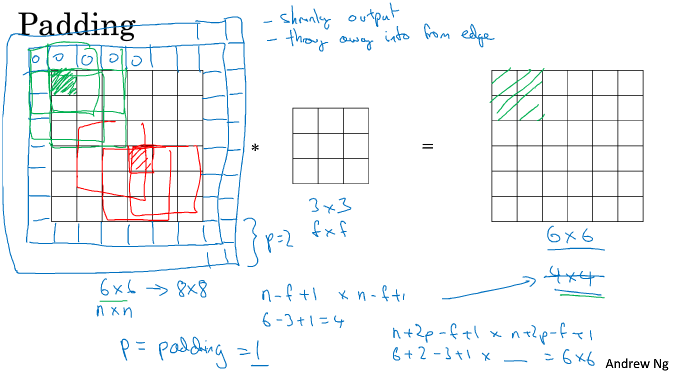 Padding
- shrinky output
- throw away info from edge
0 0 0 0 0
*
=
3 × 3
f × f
6 × 6
4 × 4
p = 2
6 × 6 → 8 × 8
n × n
n-f+1 × n-f+1
6-3+1 = 4
p = padding = 1
n+2p-f+1 × n+2p-f+1
6+2-3+1 × __ = 6×6
Andrew Ng